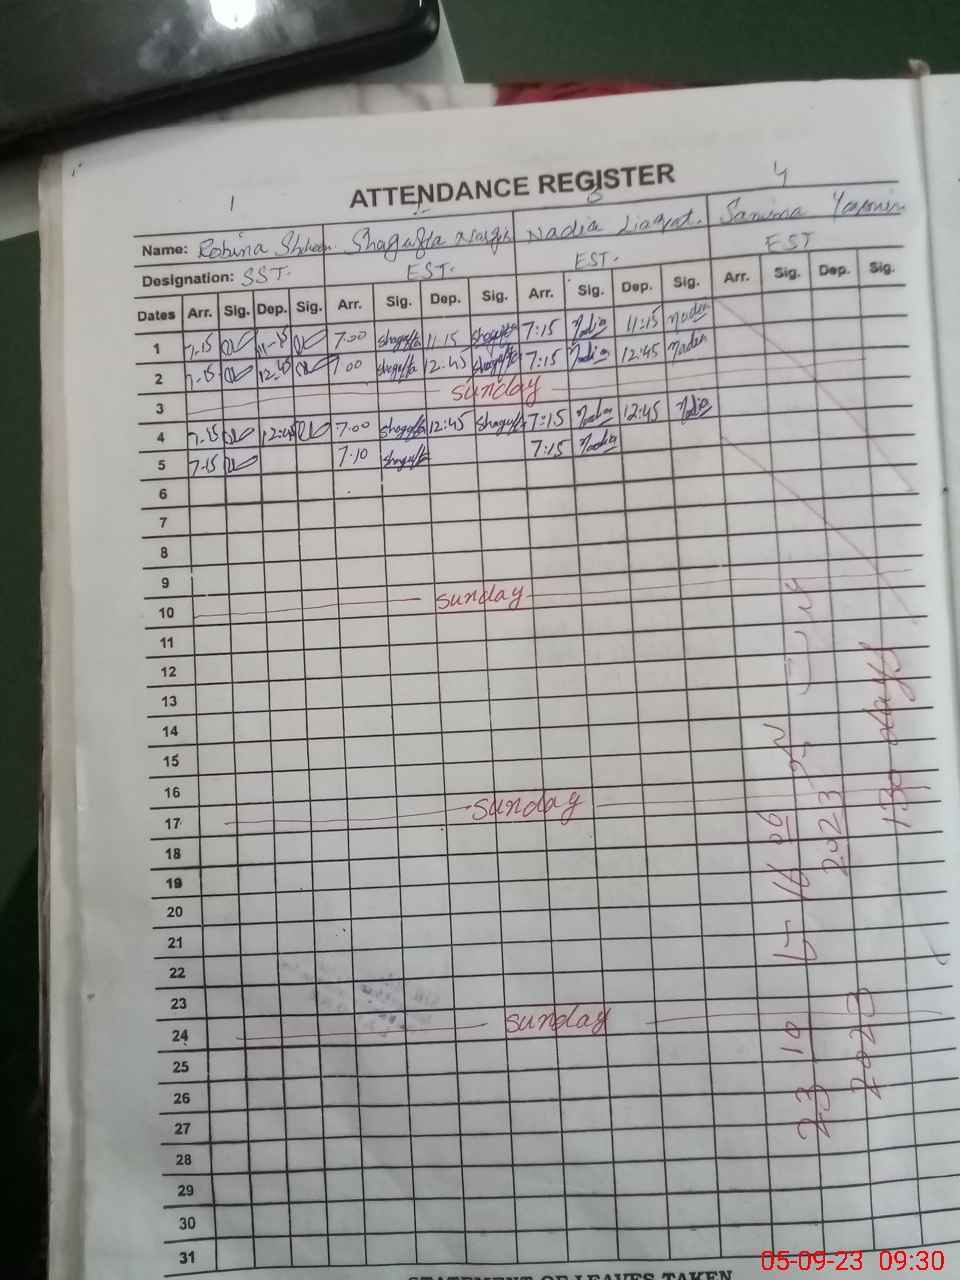 ATTENDANCE REGISTER
1 2 3 4
Name: Robina Shaheen Shagufta Nargis Nadia Liaqat. Samina Yasmin
Designation: SST. EST. EST. EST
Dates Arr. Sig. Dep. Sig. Arr. Sig. Dep. Sig. Arr. Sig. Dep. Sig. Arr. Sig. Dep. Sig.
1 7-15 11-15 7-00 Shagufta 11.15 Shagufta 7:15 Nadia 11:15 Nadia
2 7-15 12-45 7 00 Shagufta 12.45 Shagufta 7:15 Nadia 12:45 Nadia
3 sunday
4 7-15 12:45 7-00 Shagufta 12:45 Shagufta 7:15 Nadia 12:45 Nadia
5 7-15 7-10 Shagufta 7:15 Nadia
6
7
8
9
10 sunday
11
12
13
14
15
16
17 sunday
18
19
20
21
22
23
24 sunday
25
26
27
28
29
30
31
23 10 2023
16 06 2023
130 days
STATEMENT OF LEAVES TAKEN
05-09-23 09:30